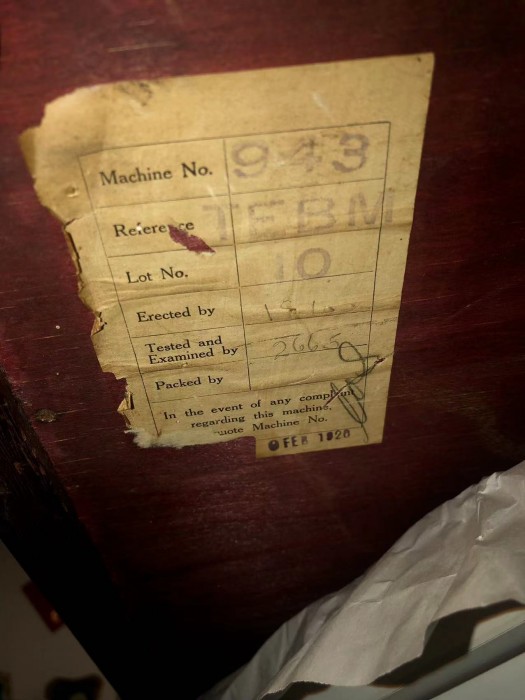 Machine No. 943
Reference TEBM
Lot No. 10
Erected by
Tested and
Examined by 2665
Packed by
In the event of any complaint
regarding this machine,
quote Machine No.
FEB 1920